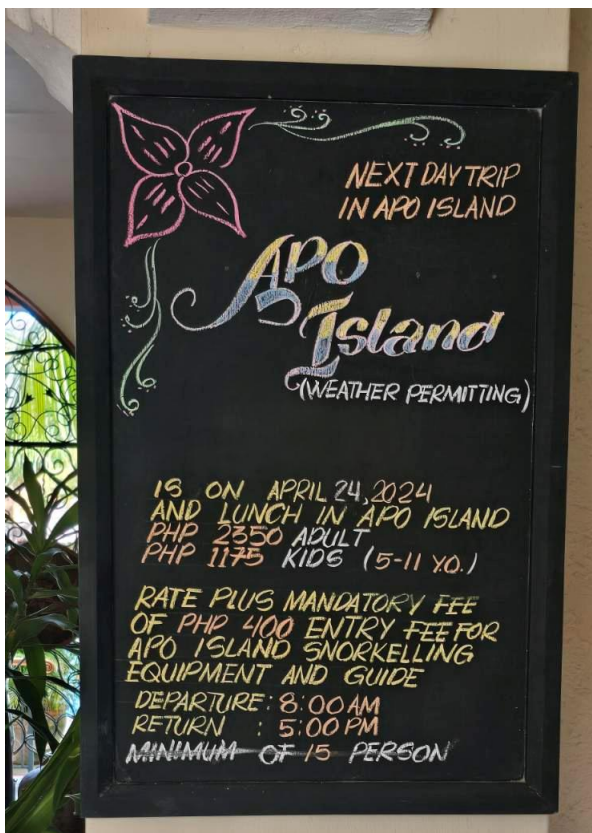 NEXT DAY TRIP
IN APO ISLAND
APO
Island
(WEATHER PERMITTING)
IS ON APRIL 24, 2024
AND LUNCH IN APO ISLAND
PHP 2350 ADULT
PHP 1175 KIDS (5-11 Y.O.)
RATE PLUS MANDATORY FEE
OF PHP 400 ENTRY FEE FOR
APO ISLAND SNORKELLING
EQUIPMENT AND GUIDE
DEPARTURE: 8:00 AM
RETURN : 5:00 PM
MINIMUM OF 15 PERSON